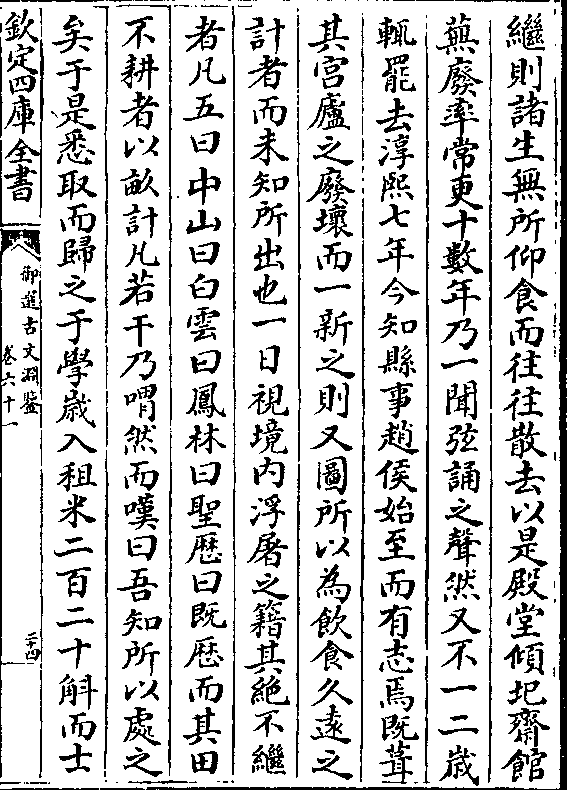 繼則諸生無所仰食而往往散去以是殿堂傾圯齋館
蕪廢率常更十數年乃一聞弦誦之聲然又不一二歳
輒罷去淳熙七年今知縣事趙侯始至而有志焉既葺
其宫廬之廢壞而一新之則又圖所以為飲食久逺之
計者而未知所出也一日視境内浮屠之籍其絶不繼
者凡五曰中山曰白雲曰鳳林曰聖歴曰既歴而其田
不耕者以畝計凡若干乃喟然而嘆曰吾知所以處之
矣于是悉取而歸之于學歳入租米二百二十斛而士
欽定四庫全書
御選古文淵鑒
卷六十一
二十四